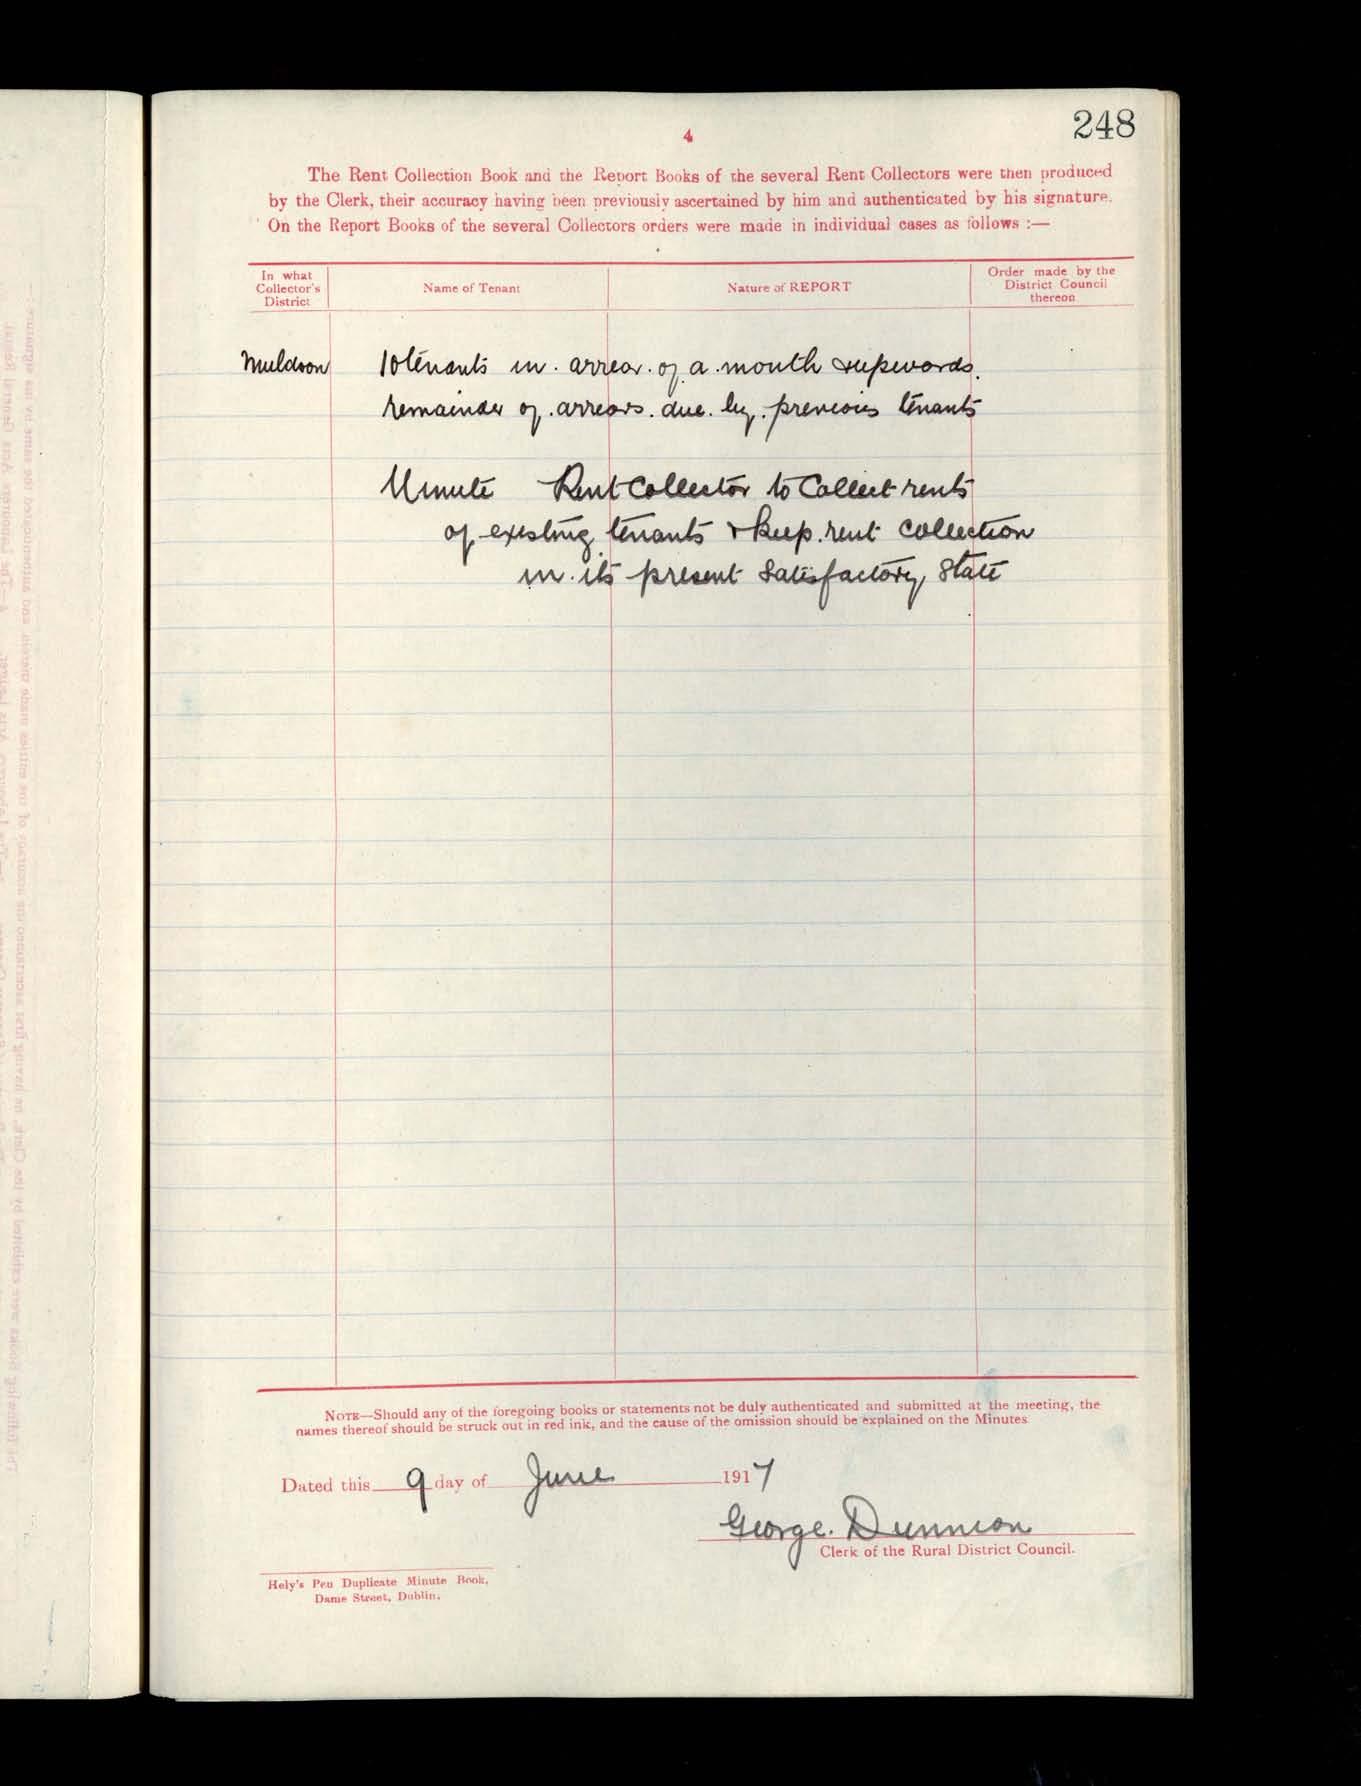 248
4
The Rent Collection Book and the Report Books of the several Rent Collectors were then produced
by the Clerk, their accuracy having been previously ascertained by him and authenticated by his signature.
On the Report Books of the several Collectors orders were made in individual cases as follows :—
In what
Collector's
District
Name of Tenant
Nature of REPORT
Order made by the
District Council
thereon
Muldoon 10 tenants in arrear of a month & upwards.
remainder of arrears due by previous tenants
Minute Rent Collector to Collect rents
of existing tenants & keep rent collection
in its present Satisfactory State
NOTE—Should any of the foregoing books or statements not be duly authenticated and submitted at the meeting, the
names thereof should be struck out in red ink, and the cause of the omission should be explained on the Minutes
Dated this 9 day of June 1917
George. Dunnion
Clerk of the Rural District Council.
Hely's Pen Duplicate Minute Book,
Dame Street, Dublin.